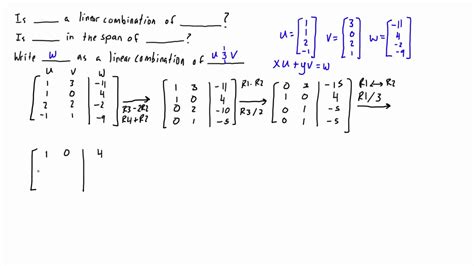 Is ____ a linear combination of ______?
Is ____ in the span of ______?
Write w as a linear combination of u & v
u = [1 1 2 -1] v = [3 0 2 1] w = [-11 4 -2 -9]
xu + yv = w
u v w
1 3 -11
1 0 4
2 2 -2
-1 1 -9
R3-2R2
R4+R2
1 3 -11
1 0 4
0 2 -10
0 1 -5
R1-R2
R3/2
0 3 -15
1 0 4
0 1 -5
0 1 -5
R1↔R2
R1/3
1 0 4